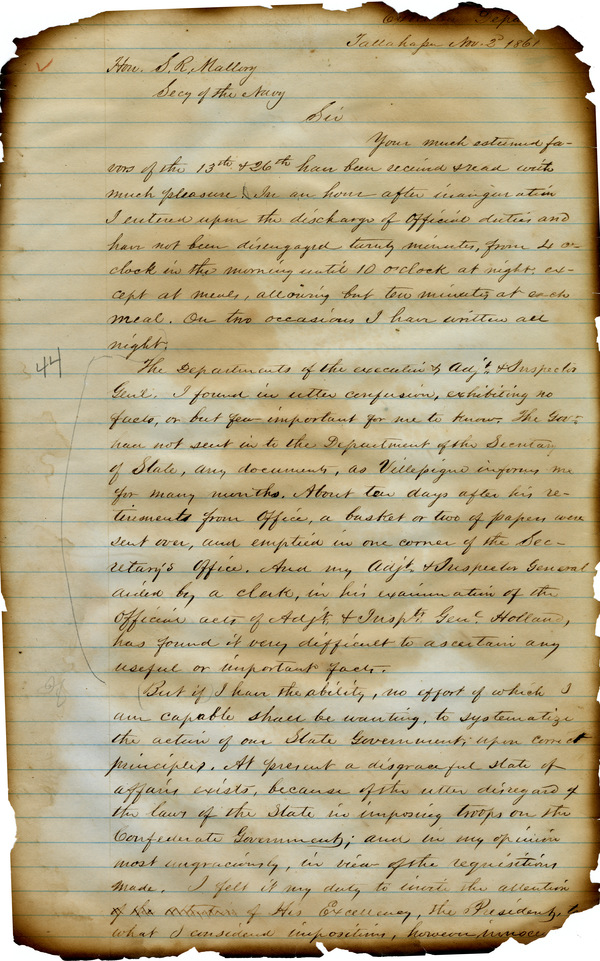 Tallahassee Nov. 2d 1861
Hon. S. R. Mallory
Secy of the Navy
Sir
Your much esteemed fa-
vors of the 13th & 26th have been received & read with
much pleasure. In an hour after inauguration
I entered upon the discharge of Official duties and
have not been disengaged twenty minutes, from 4 o-
clock in the morning until 10 o'clock at night, ex-
cept at meals, allowing but ten minutes at each
meal. On two occasions I have written all
night.
44
The Departments of the executive & Adjt. & Inspector
Genl. I found in utter confusion, exhibiting no
facts, or but few important for me to know. The Govr.
have not sent in to the Department of the Secretary
of State, any documents, as Villepigue informs me
for many months. About ten days after his re-
tirements from Office, a basket or two of papers were
sent over, and emptied in one corner of the Sec-
retary's Office. And my Adjt. & Inspector General
aided by a clerk, in his examination of the
Official acts of Adjt. & Inspt. Genl. Holland,
has found it very difficult to ascertain any
useful or important facts.
(But if) I have the ability, no effort of which I
am capable shall be wanting, to systematize
the action of our State Government, upon correct
principles. At present a disgraceful state of
affairs exists, because of the utter disregard of
the laws of the State in imposing troops on the
Confederate Government; and in my opinion
most ungraciously, in view of the requisitions
made. I felt it my duty to invite the attention
of His Excellency, the President, to
what I considered impositions, however, innoce